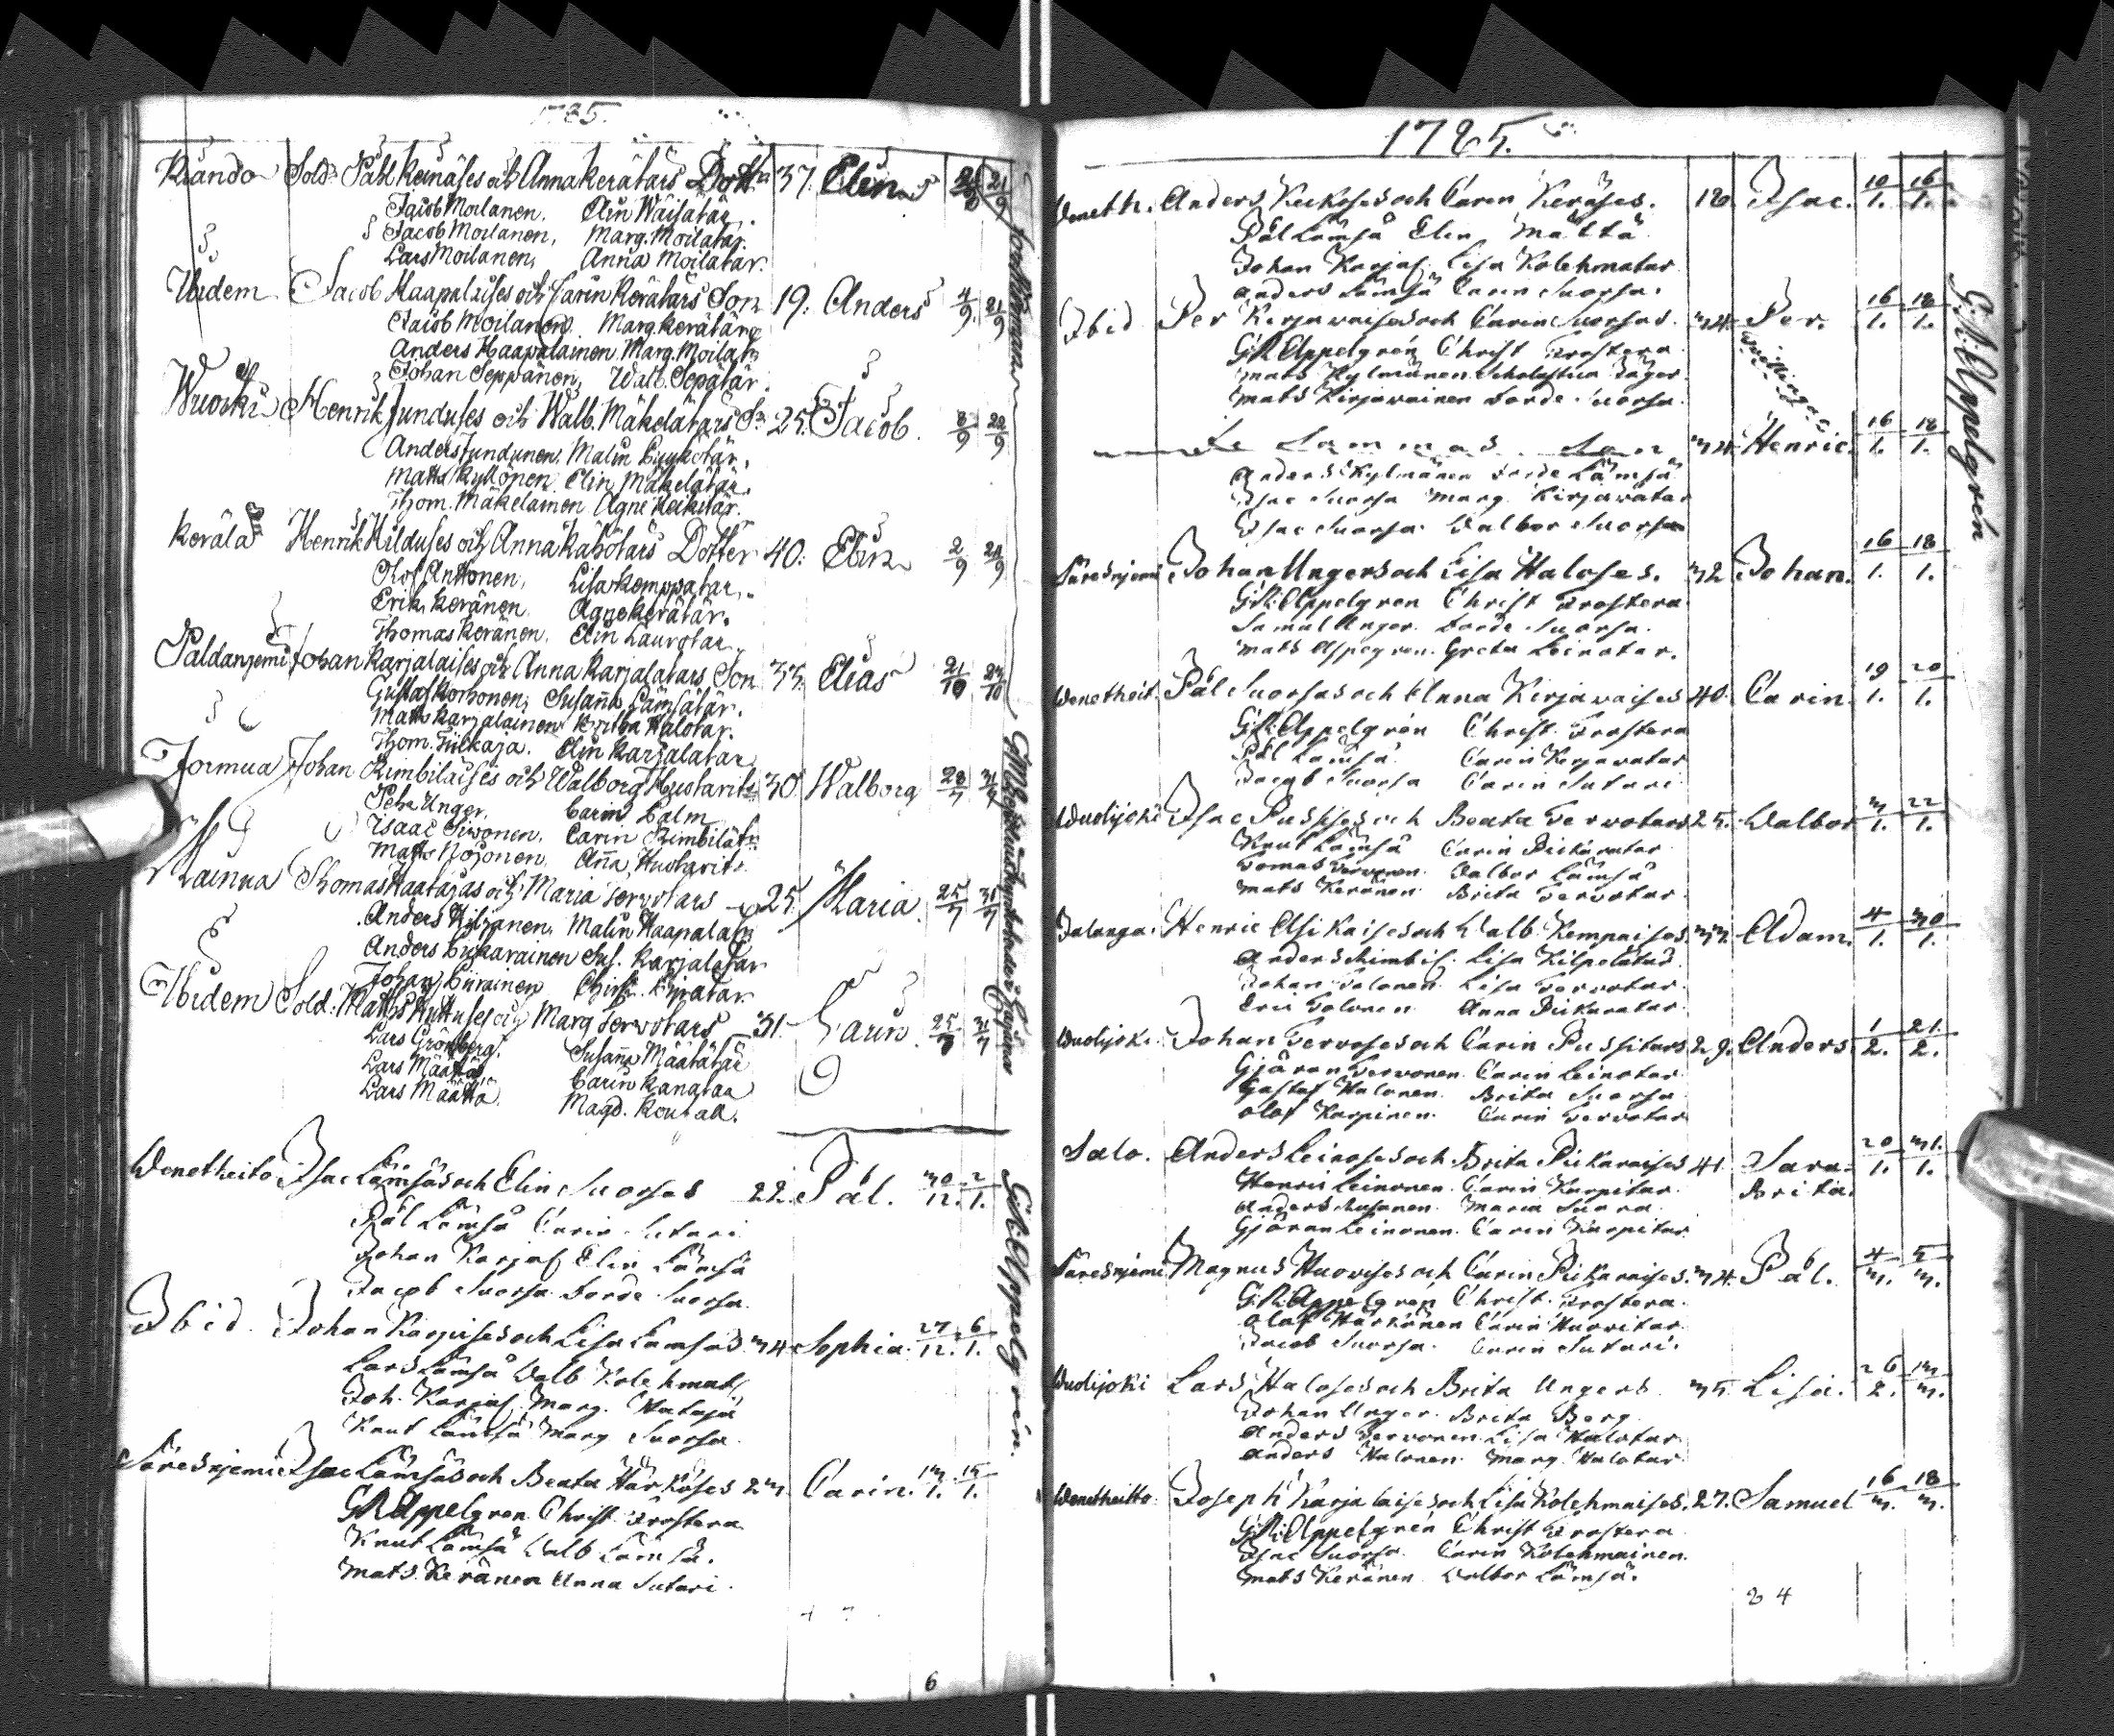 1785.
Kiando Sold. Påhl Keinäses och Anna Kerätärs Dottr 37. Elin 21/9
Jacob Moilanen. Elin Wäisätär.
Jacob Moilanen, Marg. Moilatar.
Lars Moilanen, Anna Moilatar.
Ibidem Jacob Haapalaises och Carin Kerätärs Son 19. Anders 4/9. 21/9
Jacob Moilanen. Marg. Kerätär
Anders Haapalainen Marg. Moilatr
Johan Seppänen, Walb. Sepätär.
Wuoki Henrik Junduses och Walb. Mäkelätärs Sn 25. Jacob. 8/9 22/9
Anders Jundunen. Malin
Matts Kyllönen. Elin Mäkelätär.
Thom. Mäkelainen Agne Heiketär.
Kerälä Henrik Hilduses och Anna Dotter 40. Elin 2/9 24/9
Olof Anttonen, Lisa Kemppatar.
Erik Keränen Agne Kerätär.
Thomas Keränen, Elin Laurotar.
Paldanjemi Johan Karjalaises och Anna Karjalatars Son 33. Elias 21/10 24/10
Gustaf Korhonen, Susanna Lämsätär.
Matts Karjalainen Halotar.
Thom. Tiikkaja. Elin Karjalatar
Jormua Johan Kimbiläises och Walborg Hustarits 30. Walborg 28/7 31/7
Petr Unger, Carin Calm
Isaac Siwonen. Carin Kimbilätr
Matts Anna Hustarits
Thomas Haatajas och Maria Terwotars 25. Maria 25/7 31/7
Anders Kiljanen. Malin Haapalatr
Anders Sus. Karjalatar
Johan Piirainen
Ibidem Sold. Matts Huttuses och Marg Terwotars 31. Carin 25/7 31/7
Lars Grönberg. Susanna Määtätär
Lars Määttä. Carin Kangtar
Lars Määttä. Magd.
Wenetheito Isac Lämsäs och Elin Suorsas 22. Pål. 30/12. 2/1.
Pål Lämsä Carin Sutari
Johan Karjal Elin Lämsä
Jacob Suorsa Dorde Suorsa.
Ibid. Johan och Lisa Lämsäs 34. Sophia 27/12. 6/1.
Lars Lämsä Walb Kolehmat
Joh. Karjal. Marg. Hataja
Knut Lämsä Marg Suorsa.
Säresnjemi Isac Lämsäs och Beata Härköses 23. Carin. 13/1. 15/1.
GR Appelgren Christ Frostera
Knut Lämsä Walb Lämsä.
Mats Keränen Anna Sutari.
G.R. Appelgren.
6
1785.
Weneth. Anders Keckoses och Carin Keräses. 18. Isac. 10/1. 16/1.
Pål Lämsä Elin Mättä
Johan Karjal. Lisa Kolehmatar
Anders Lämsä Carin Suorsa.
Ibid Per Kirjawaises och Carin Suorsas. 34 Per. 16/1. 18/1.
G.R. Appelgrén Christ Frostera
Mats Kylmänen Scholastica Jäger
Mats Kirjawainen Dorde Suorsa.
Twillingar
De Sammas Son 34 Henric. 16/1. 18/1.
Anders Kylmänen Dorde Lämsä
Isac Suorsa Marg. Kirjawatar
Isac Suorsa. Walbor Suorsa
Säresnjemi Johan Ungers och Lisa Haloses. 32 Johan. 16/1. 18/1.
G.R. Appelgren Christ Frostera
Samul Unger. Dorde Suorsa.
Mats Appegren. Greta Leinotar.
Wenetheit. Pål Suorsas och Anna Kirjawaises 40. Carin. 19/1. 20/1.
G.R. Appelgrén Christ. Frostera
Pål Lämsä Carin Kirjawatar
Jacob Suorsa Carin Sutari
Wuolijoki Isac Pussises och Beata Terwotars 25. Walbor 3/1. 22/1.
Knut Lämsä Carin Pickaratar
Tomas Terwonen. Walbor Lämsä
Mats Keränen. Brita Terwotar.
Jalanga. Henric Asikaises och Walb. Kempaises. 33. Adam. 4/1. 30/1.
Anders Kimbil. Lisa Kilpelätär.
Johan Talonen. Lisa Terwotar.
Eric Tolonen. Anna Pickaratar.
Wuolijoki. Johan Terwoses och Carin Pussitars 29. Anders. 1/2. 21/2.
Gjöran Terwonen. Carin Leinotar.
Gustaf Halonen. Brita Suorsa
Olof Karpinen. Carin Terwotar
Salo. Anders Leinoses och Brita Pickaraises 41. Sara Brita. 20/1. 31/1.
Henric Leinonen. Carin Karpitar.
Anders Mustonen. Maria Suora.
Gjöran Leinonen. Carin Karpitar
Säresnjemi Magnus Huowises och Carin Pickaraises. 34. Pål. 4/3. 5/3.
G.R. Appelgren Christ. Frostera.
Olof Härkönen Carin Huowitar.
Jacob Suorsa. Carin Sutari.
Wuolijoki Lars Haloses och Brita Ungers 35. Lisa. 26/2. 13/3.
Johan Unger. Brita Berg
Anders Terwonen. Lisa Halotar.
Anders Halonen. Marg. Halotar
Wenetheitto. Joseph Karjalaises och Lisa Kolehmaises. 27. Samuel 16/3. 18/3.
G.R. Appelgrén Christ Frostera
Isac Suorsa. Carin Kolehmainen.
Mats Keränen. Walbor Lämsä.
24
G.R. Appelgrén